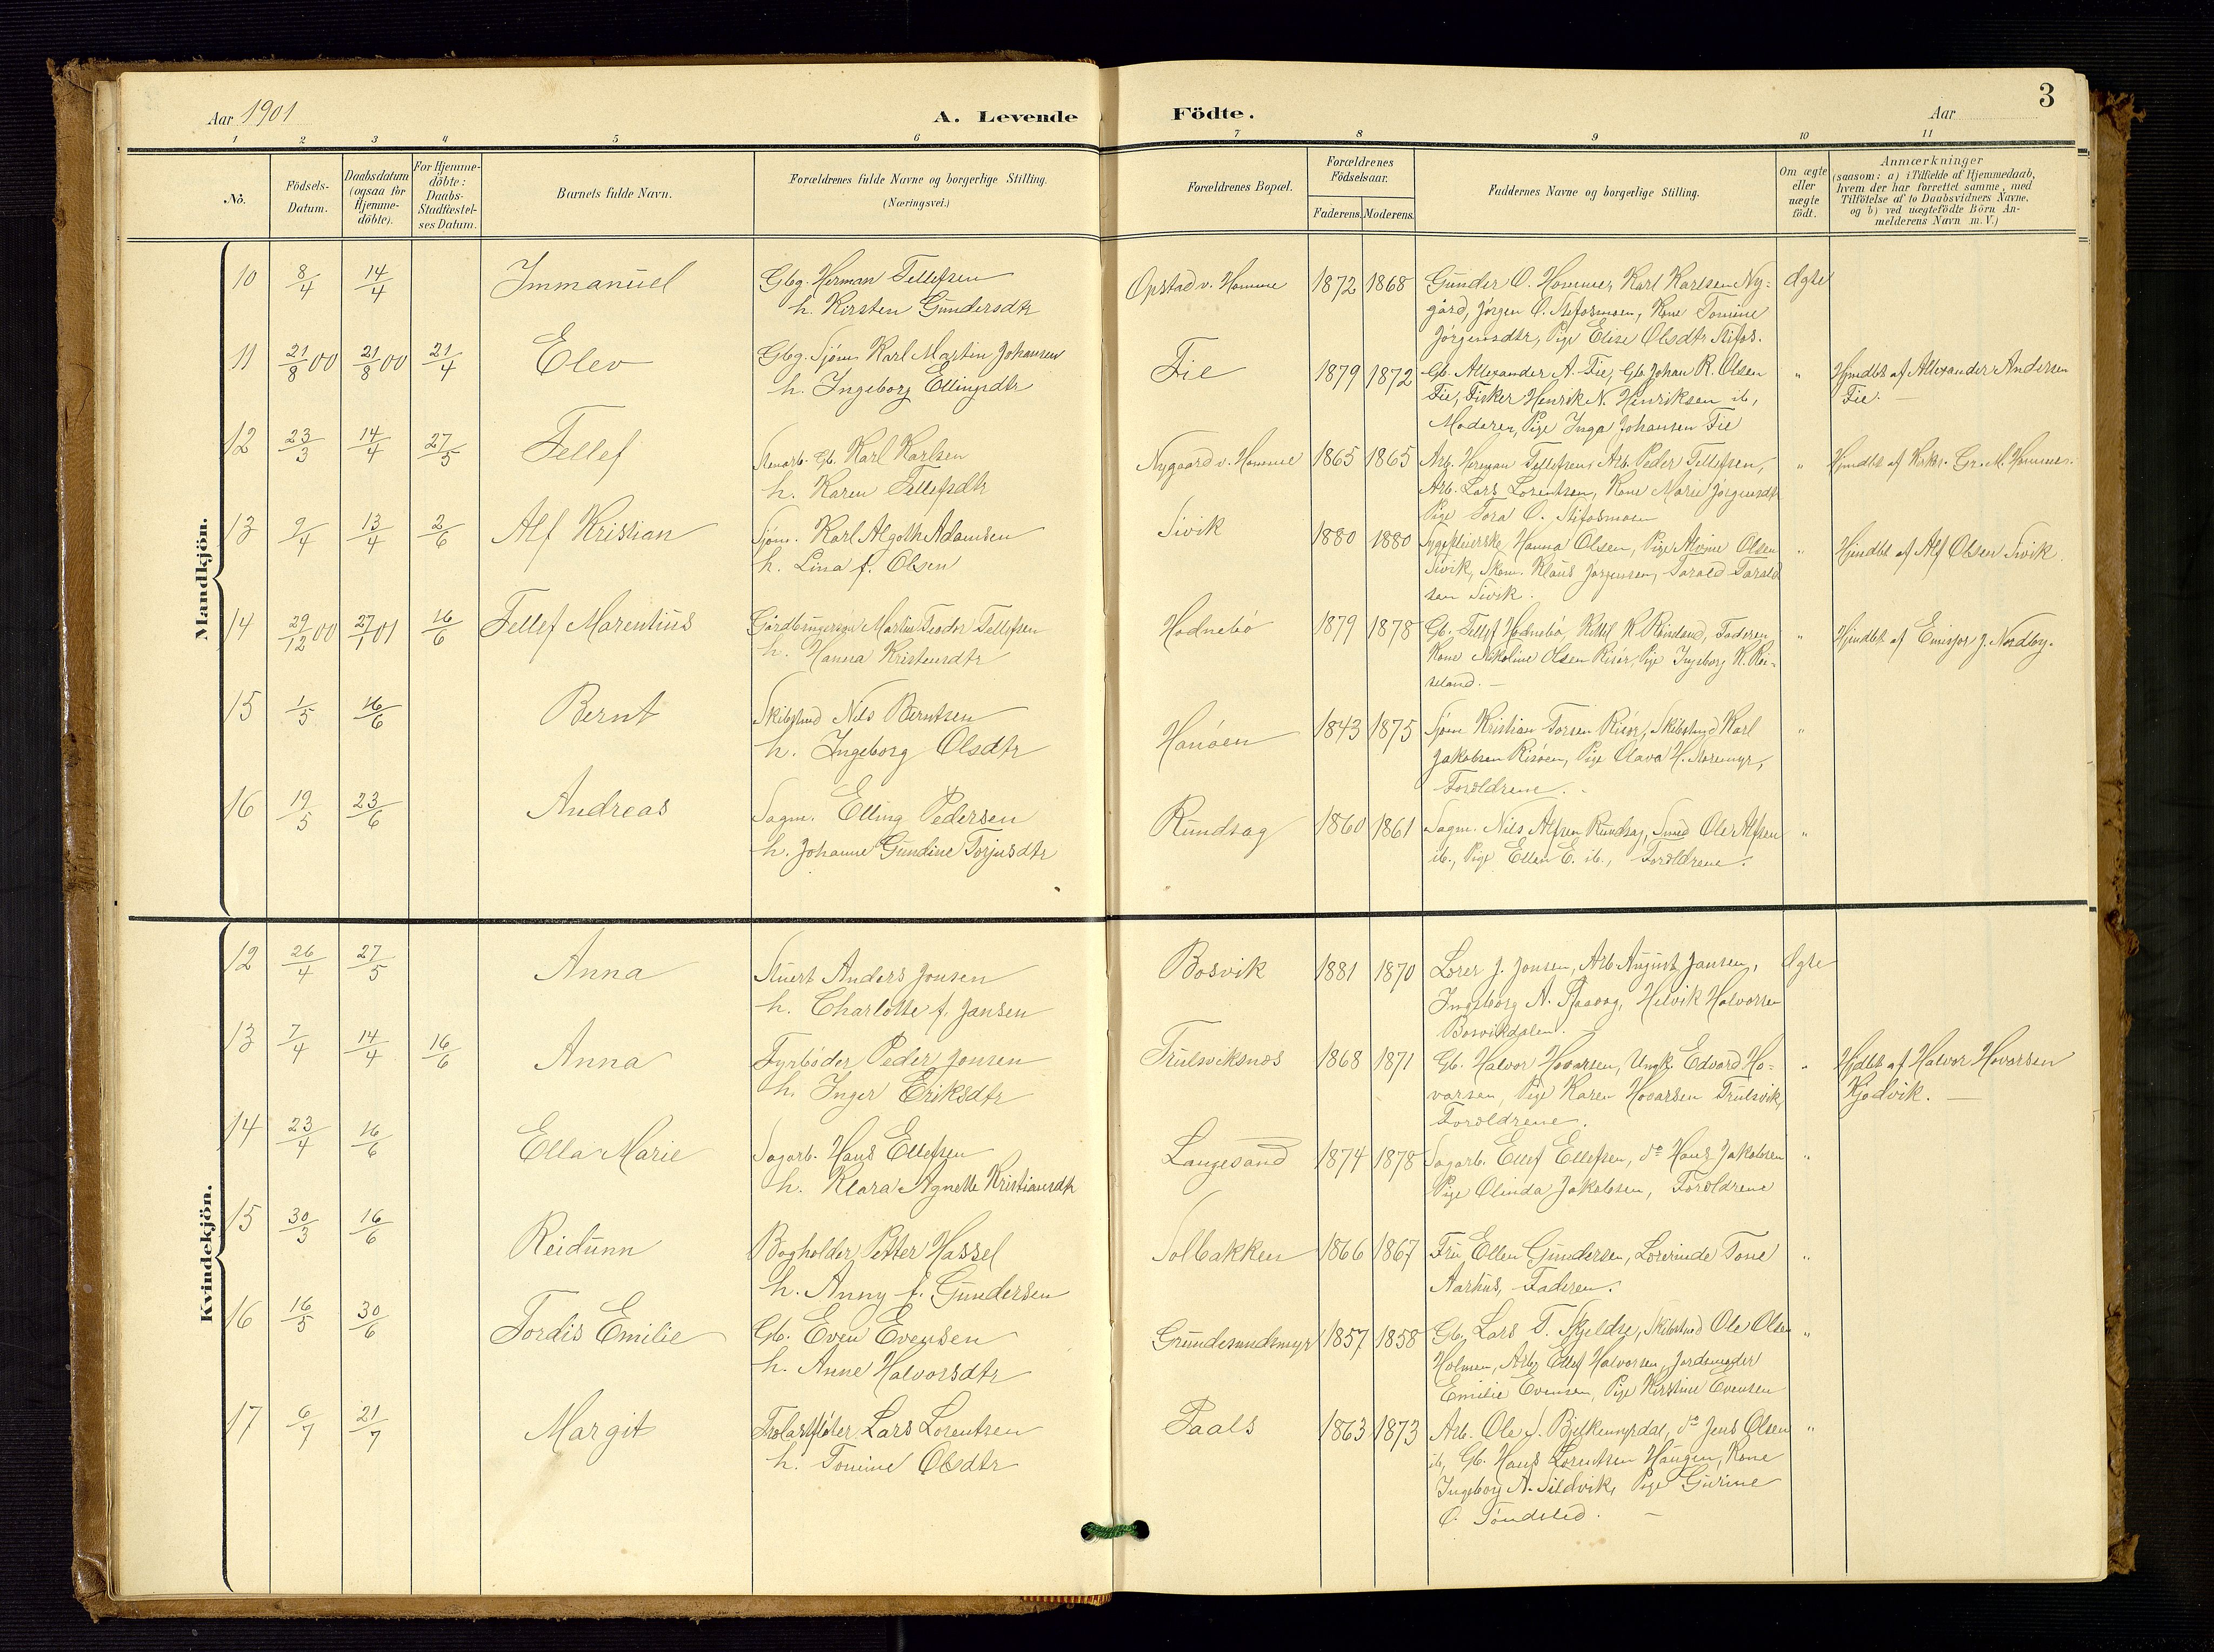 3
Aar 1901
A. Levende Födte.
Aar
1 2 3 4 5 6 7 8 9 10 11
No. Födsels-Datum. Daabsdatum (ogsaa for Hjemme-döbte). For Hjemme-döbte: Daabs-Stadfæstel-ses Datum. Barnets fulde Navn. Forældrenes fulde Navne og borgerlige Stilling. (Næringsvei.) Forældrenes Bopæl. Forældrenes Födselsaar. Faderens. Moderens. Faddernes Navne og borgerlige Stilling. Om ægte eller uægte födt. Anmærkninger (saasom: a) i Tilfælde af Hjemmedaab, hvem der har forrettet samme, med Tilföielse af to Daabsvidners Navne, og b) ved uægtefödte Börn An-melderens Navn m. V.)
Mandkjön.
10 8/4 14/4 Immanuel Gbg. Herman Tellefsen Opstad v. Homme 1872 1868 Gunder O. Hommer, Karl Karlsen Ny-Ægte
h. Kirsten Gundersdtr gård, Jörgen O. Stifosmoen, Kone Tomine
Jörgensdtr, Pige Elise Olsdtr Stifos.
11 21/8 00 21/8 00 21/4 Elev Gbg. Sjöm. Karl Martin Johansen Fie 1879 1872 Gb. Allexander A. Fie, Gb. Johan R. Olsen " Hjmdbt af Allexander Andersen
h. Ingeborg Ellingsdtr Fie, Fisker Henrik N. Henriksen ib, Fie.
Moderen, Pige Inga Johansen Fie
12 23/3 14/4 27/5 Tellef Stenarb. Gb. Karl Karlsen Nygaard v. Homme 1865 1865 Arb. Herman Tellefsen, Arb. Peder Tellefsen, " Hjmdbt af Kirks. Gr. M. Hommer.
h. Karen Tellefsdtr Arb. Lars Lorentsen, Kone Marie Jörgensdtr
Pige Tora O. Stifosmoen
13 9/4 13/4 2/6 Alf Kristian Sjöm. Karl Algoth Adamsen Sivik 1880 1880 Sygepleierske Hanna Olsen, Pige Alvine Olsen " Hjmdbt af Alf Olsen Sivik.
h. Lina f. Olsen Sivik, Skom. Klaus Jörgensen, Tarald Tarald-
sen Sivik.
14 29/12 00 27/1 01 16/6 Tellef Marentius Gårdbrugersön Martin Teodor Tellefsen Hodnebö 1879 1878 Gb. Tellef Hodnebö, Kittil K. Röiseland, Faderen, " Hjmdbt af Emisjær J. Nordby.
h. Hanna Kristensdtr Kone Nikoline Olsen Risör, Pige Ingeborg K. Röi-
seland.
15 1/5 16/6 Bernt Skibstmd Nils Berntsen Hanöen 1843 1875 Sjöm Kristian Torsen Risör, Skibstmd Karl "
h. Ingeborg Olsdtr Jakobsen Risöen, Pige Olava H. Moremyr,
Forældrene.
16 19/5 23/6 Andreas Sagm. Elling Pedersen Rundsag 1860 1861 Sagm. Nils Alfsen Rundsag, Smed Ole Alfsen "
h. Johanne Gundine Torjusdtr ib., Pige Ellen E. ib., Forældrene.
Kvindekjön.
12 26/4 27/5 Anna Stuert Anders Jonsen Bosvik 1881 1870 Lærer J. Jonsen, Arb August Jansen, Ægte
h. Charlotte f. Jansen Ingeborg A. , Helvik Halvorsen
Bosvikdalen.
13 7/4 14/4 16/6 Anna Fyrböder Peder Jonsen Trulsviksnæs 1868 1871 Gb. Halvor Hovarsen, Ungk. Edvard Ho- " Hjdbt af Halvor Hovarsen
h. Inger Eriksdtr varsen, Pige Karen Hovarsen Trulsvik, Kjödvik.
Forældrene.
14 23/4 16/6 Ella Marie Sagarb. Hans Ellefsen Langesand 1874 1878 Sagarb. Ellef Ellefsen, do Hans Jakobsen "
h. Klara Agnette Kristiansdtr Pige Olinda Jakobsen, Forældrene
15 30/3 16/6 Reidunn Bogholder Petter Hassel Solbakken 1866 1867 Fru Ellen Gundersen, Lærerinde Tone "
h. Anny f. Gundersen Aarhus, Faderen.
16 16/5 30/6 Tordis Emilie Gb. Even Evensen Grundesundsmyr 1857 1858 Gb. Lars T. Skjeldse, Skibstmd Ole Olsen "
h. Anne Halvorsdtr Holmen, Arb Ellef Halvorsen, Jordemoder
Emilie Evensen, Pige Kirstine Evensen
17 6/7 21/7 Margit Lars Lorentsen Paals 1863 1873 Arb. Ole J. Bjelkemyrdal, do Jens Olsen "
h. Tomine Olsdtr ib, Gb. Hans Lorentsen Haugen, Kone
Ingeborg A. Sildvik, Pige Gurine
O. Töndeled.